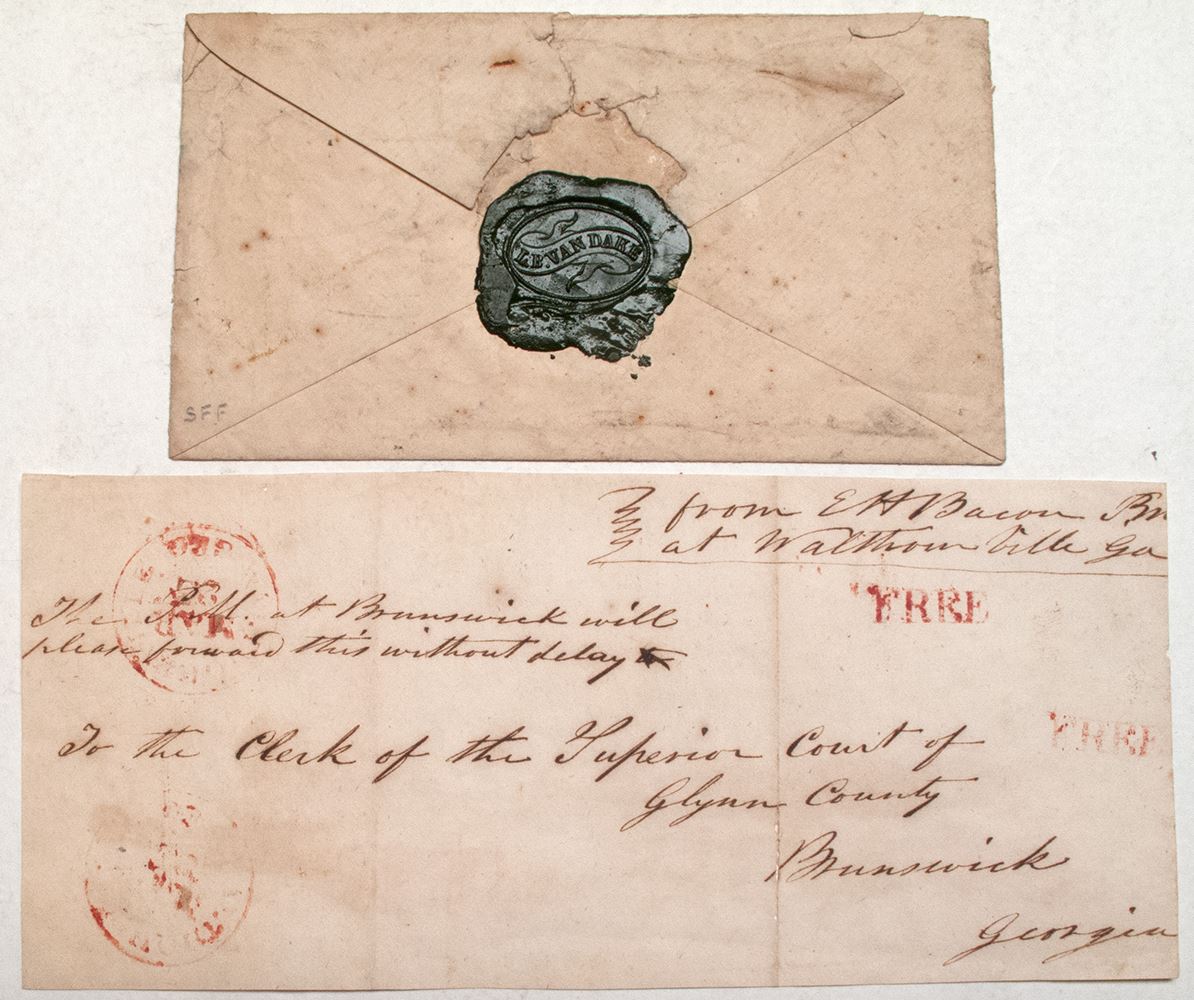 LE VAN DAKE
SFF
from E H Bacon
at Walthourville Ga
FREE
The P. M. at Brunswick will
please forward this without delay
FREE
To the Clerk of the Superior Court of
Glynn County
Brunswick
Georgia